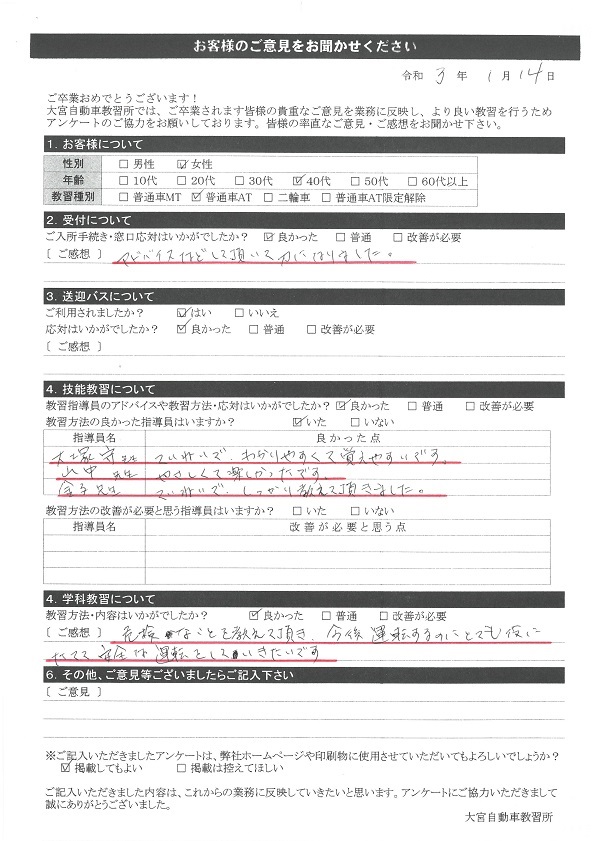 お客様のご意見をお聞かせください
令和 3 年 1 月 14 日
ご卒業おめでとうございます！
大宮自動車教習所では、ご卒業されます皆様の貴重なご意見を業務に反映し、より良い教習を行うため
アンケートのご協力をお願いしております。皆様の率直なご意見・ご感想をお聞かせ下さい。
1. お客様について
性別 □ 男性 ☑ 女性
年齢 □ 10代 □ 20代 □ 30代 ☑ 40代 □ 50代 □ 60代以上
教習種別 □ 普通車MT ☑ 普通車AT □ 二輪車 □ 普通車AT限定解除
2. 受付について
ご入所手続き・窓口応対はいかがでしたか？ ☑ 良かった □ 普通 □ 改善が必要
［ ご感想 ］ アドバイスなどして頂いて力になりました。
3. 送迎バスについて
ご利用されましたか？ ☑ はい □ いいえ
応対はいかがでしたか？ ☑ 良かった □ 普通 □ 改善が必要
［ ご感想 ］
4. 技能教習について
教習指導員のアドバイスや教習方法・応対はいかがでしたか？ ☑ 良かった □ 普通 □ 改善が必要
教習方法の良かった指導員はいますか？ ☑ いた □ いない
指導員名 良かった点
大塚 先生 ていねいで、わかりやすくて覚えやすいです。
山中 先生 やさしくて楽しかったです。
金子 先生 ていねいで、しっかり教えて頂きました。
教習方法の改善が必要と思う指導員はいますか？ □ いた □ いない
指導員名 改善が必要と思う点
4. 学科教習について
教習方法・内容はいかがでしたか？ ☑ 良かった □ 普通 □ 改善が必要
［ ご感想 ］ 危険なことを教えて頂き、今後運転するのにとても役に
たてて安全な運転をしていきたいです
6. その他、ご意見等ございましたらご記入下さい
［ ご意見 ］
※ご記入いただきましたアンケートは、弊社ホームページや印刷物に使用させていただいてもよろしいでしょうか？
☑ 掲載してもよい □ 掲載は控えてほしい
ご記入いただきました内容は、これからの業務に反映していきたいと思います。アンケートにご協力いただきまして
誠にありがとうございました。
大宮自動車教習所